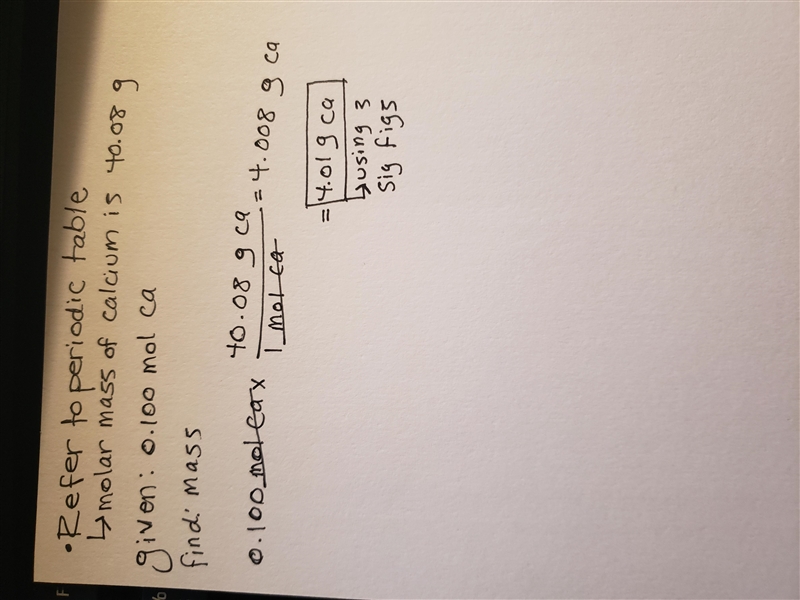 • Refer to periodic table
↳ molar mass of calcium is 40.08 g
given: 0.100 mol ca
find: mass
0.100 mol ca x 40.08 g ca / 1 mol ca = 4.008 g ca
= 4.01 g ca
↳ using 3
sig figs